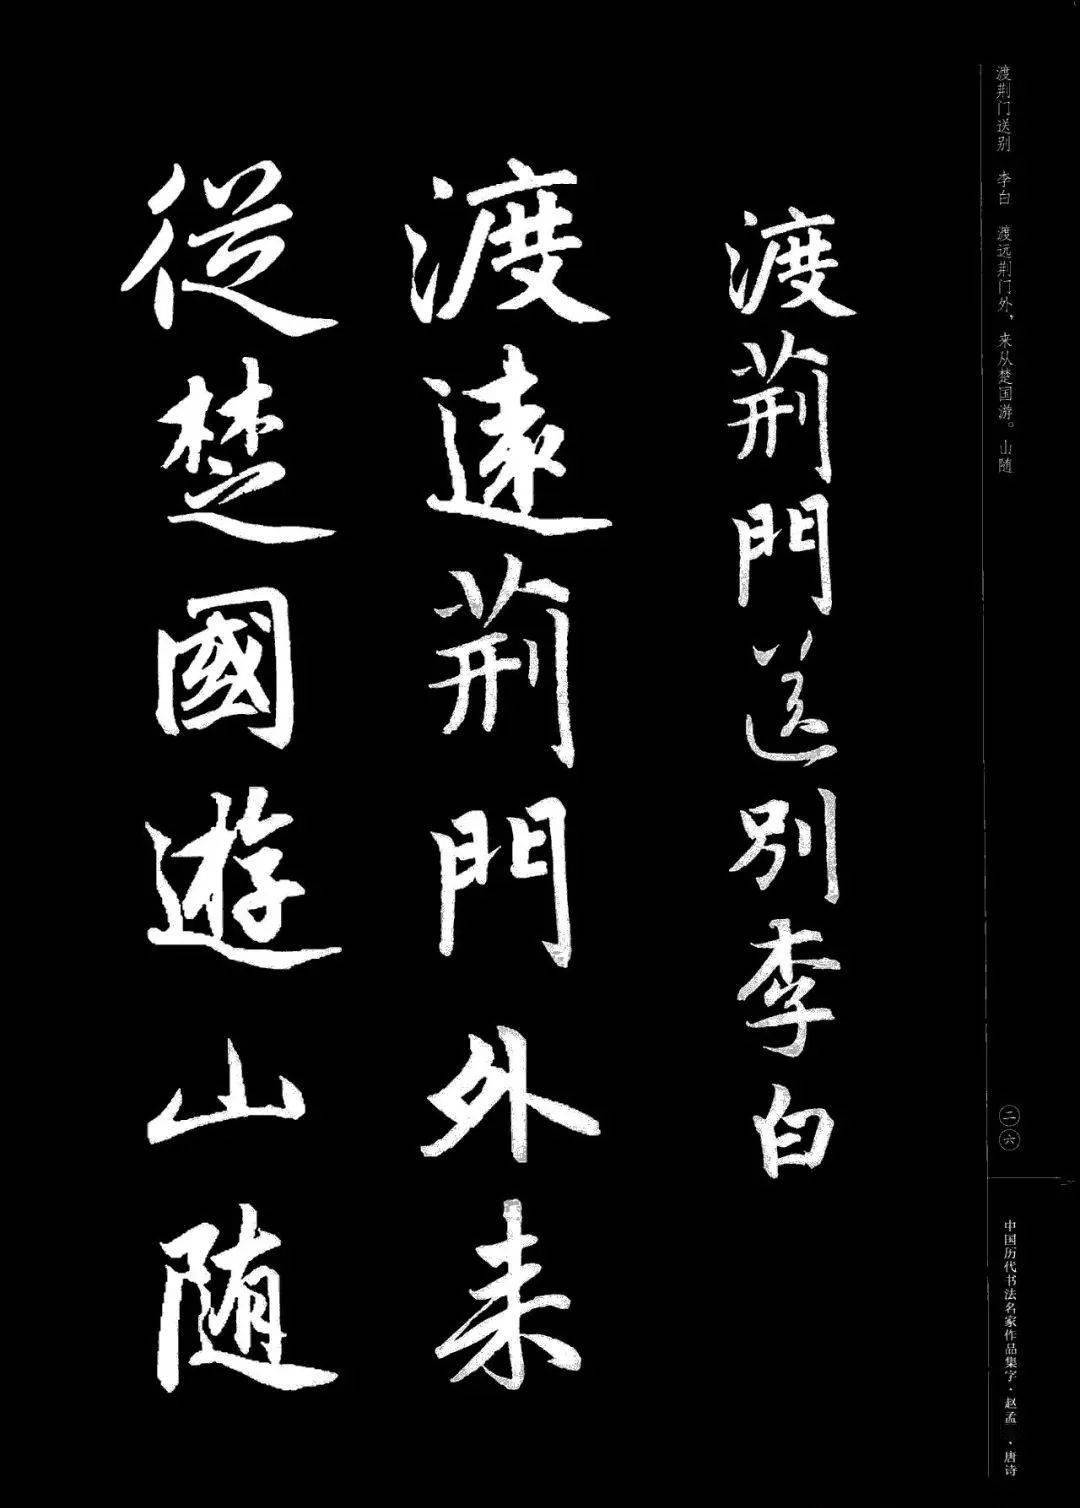 渡荆门送别 李白 渡远荆门外，来从楚国游。山随
二六
中国历代书法名家作品集字·赵孟 ·唐诗
渡荊門送别李白
渡遠荊門外来
從楚國遊山随